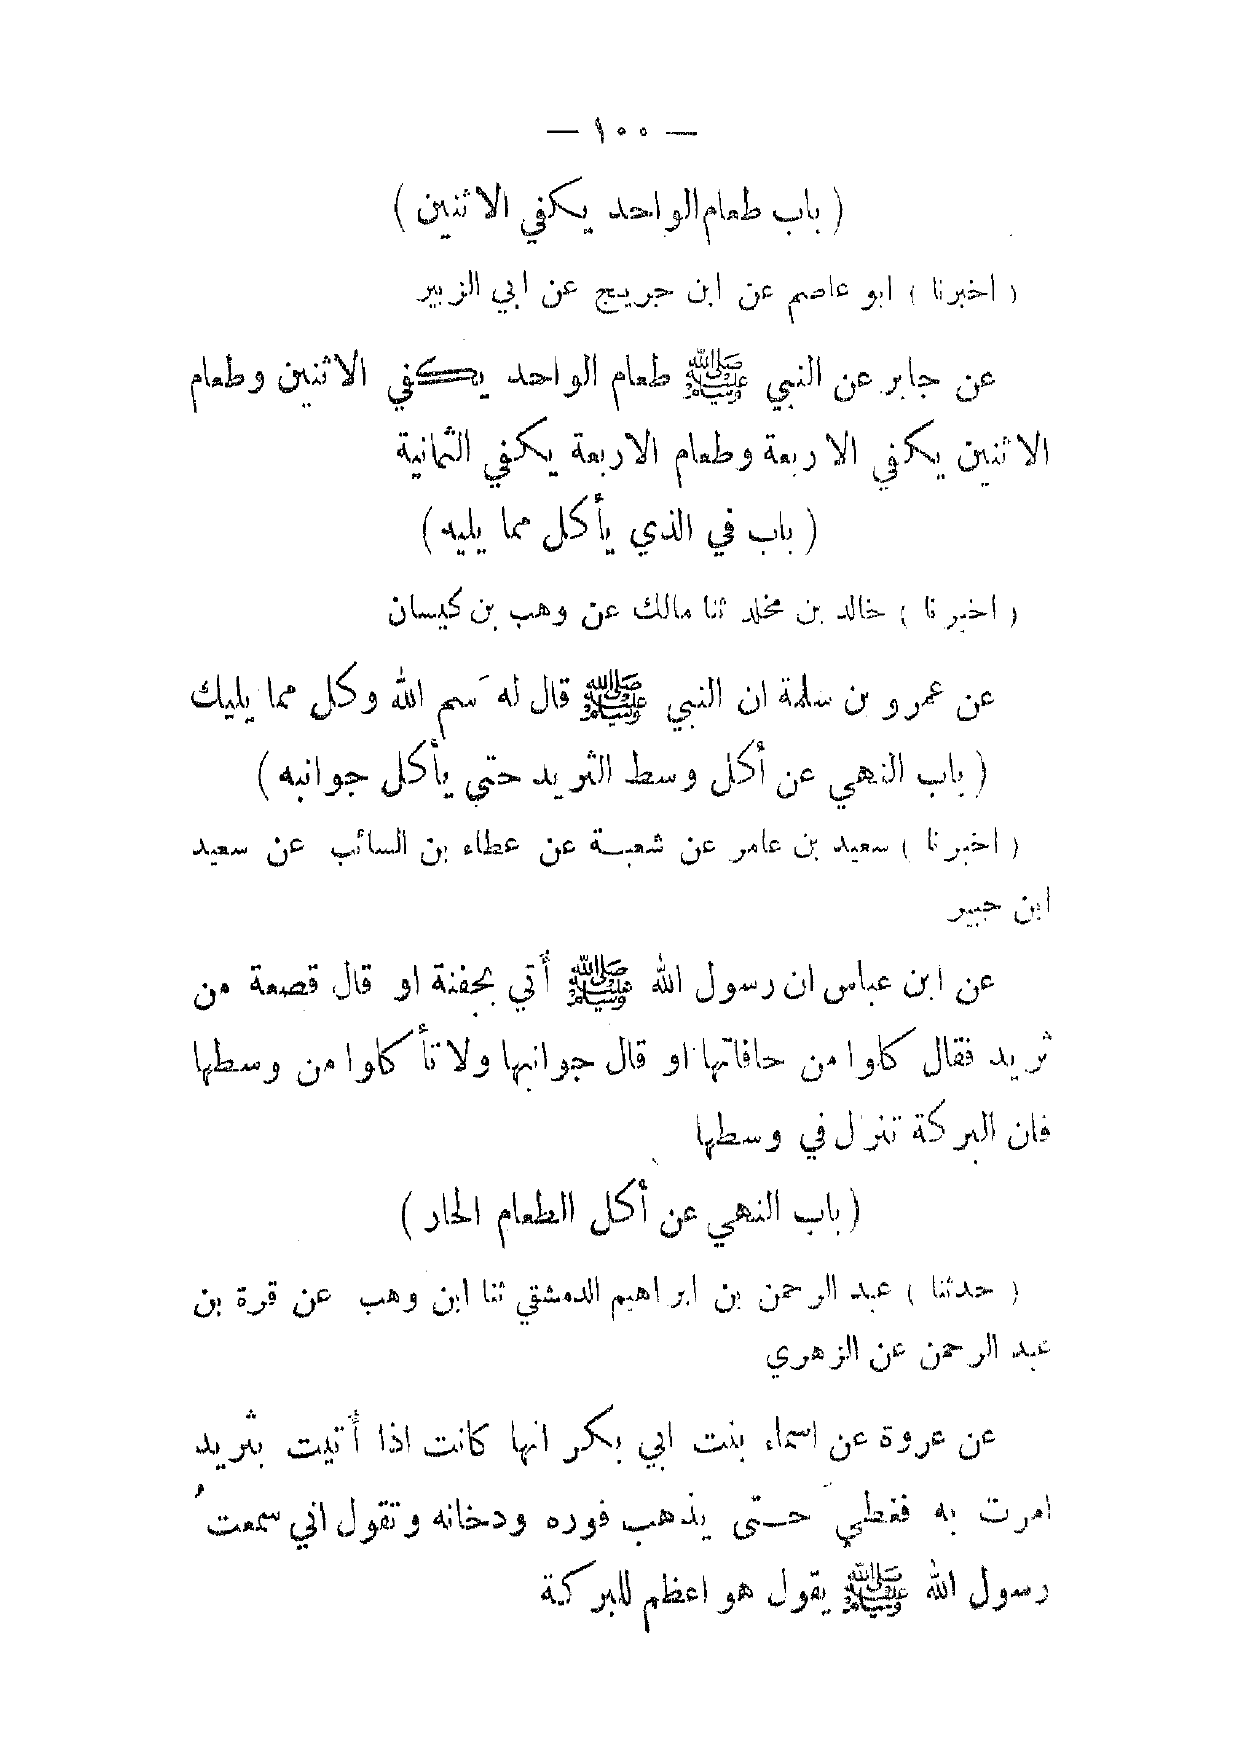 — ١٠٠ —
( باب طعام الواحد يكفي الاثنين )
( اخبرنا ) ابو عاصم عن ابن جريج عن ابي الزبير
عن جابر عن النبي ﷺ طعام الواحد يكفي الاثنين وطعام
الاثنين يكفي الاربعة وطعام الاربعة يكفي الثمانية
( باب في الذي يأكل مما يليه )
( اخبرنا ) خالد بن مخلد ثنا مالك عن وهب بن كيسان
عن عمرو بن سلمة ان النبي ﷺ قال له َسم الله وكل مما يليك
( باب النهي عن أكل وسط الثريد حتي يأكل جوانبه )
( اخبرنا ) سعيد بن عامر عن شعبة عن عطاء بن السائب عن سعيد
ابن جبير
عن ابن عباس ان رسول الله ﷺ أُتي بجفنة او قال قصعة من
ثريد فقال كلوا من حافاتها او قال جوانبها ولا تأكلوا من وسطها
فان البركة تنزل في وسطها
( باب النهي عن أكل الطعام الحار )
( حدثنا ) عبد الرحمن بن ابراهيم الدمشقي ثنا ابن وهب عن قرة بن
عبد الرحمن عن الزهري
عن عروة عن اسماء بنت ابي بكر انها كانت اذا أُتيت بثريد
امرت به فغطيَ حتى يذهب فوره ودخانه وتقول اني سمعتُ
رسول الله ﷺ يقول هو اعظم للبركة